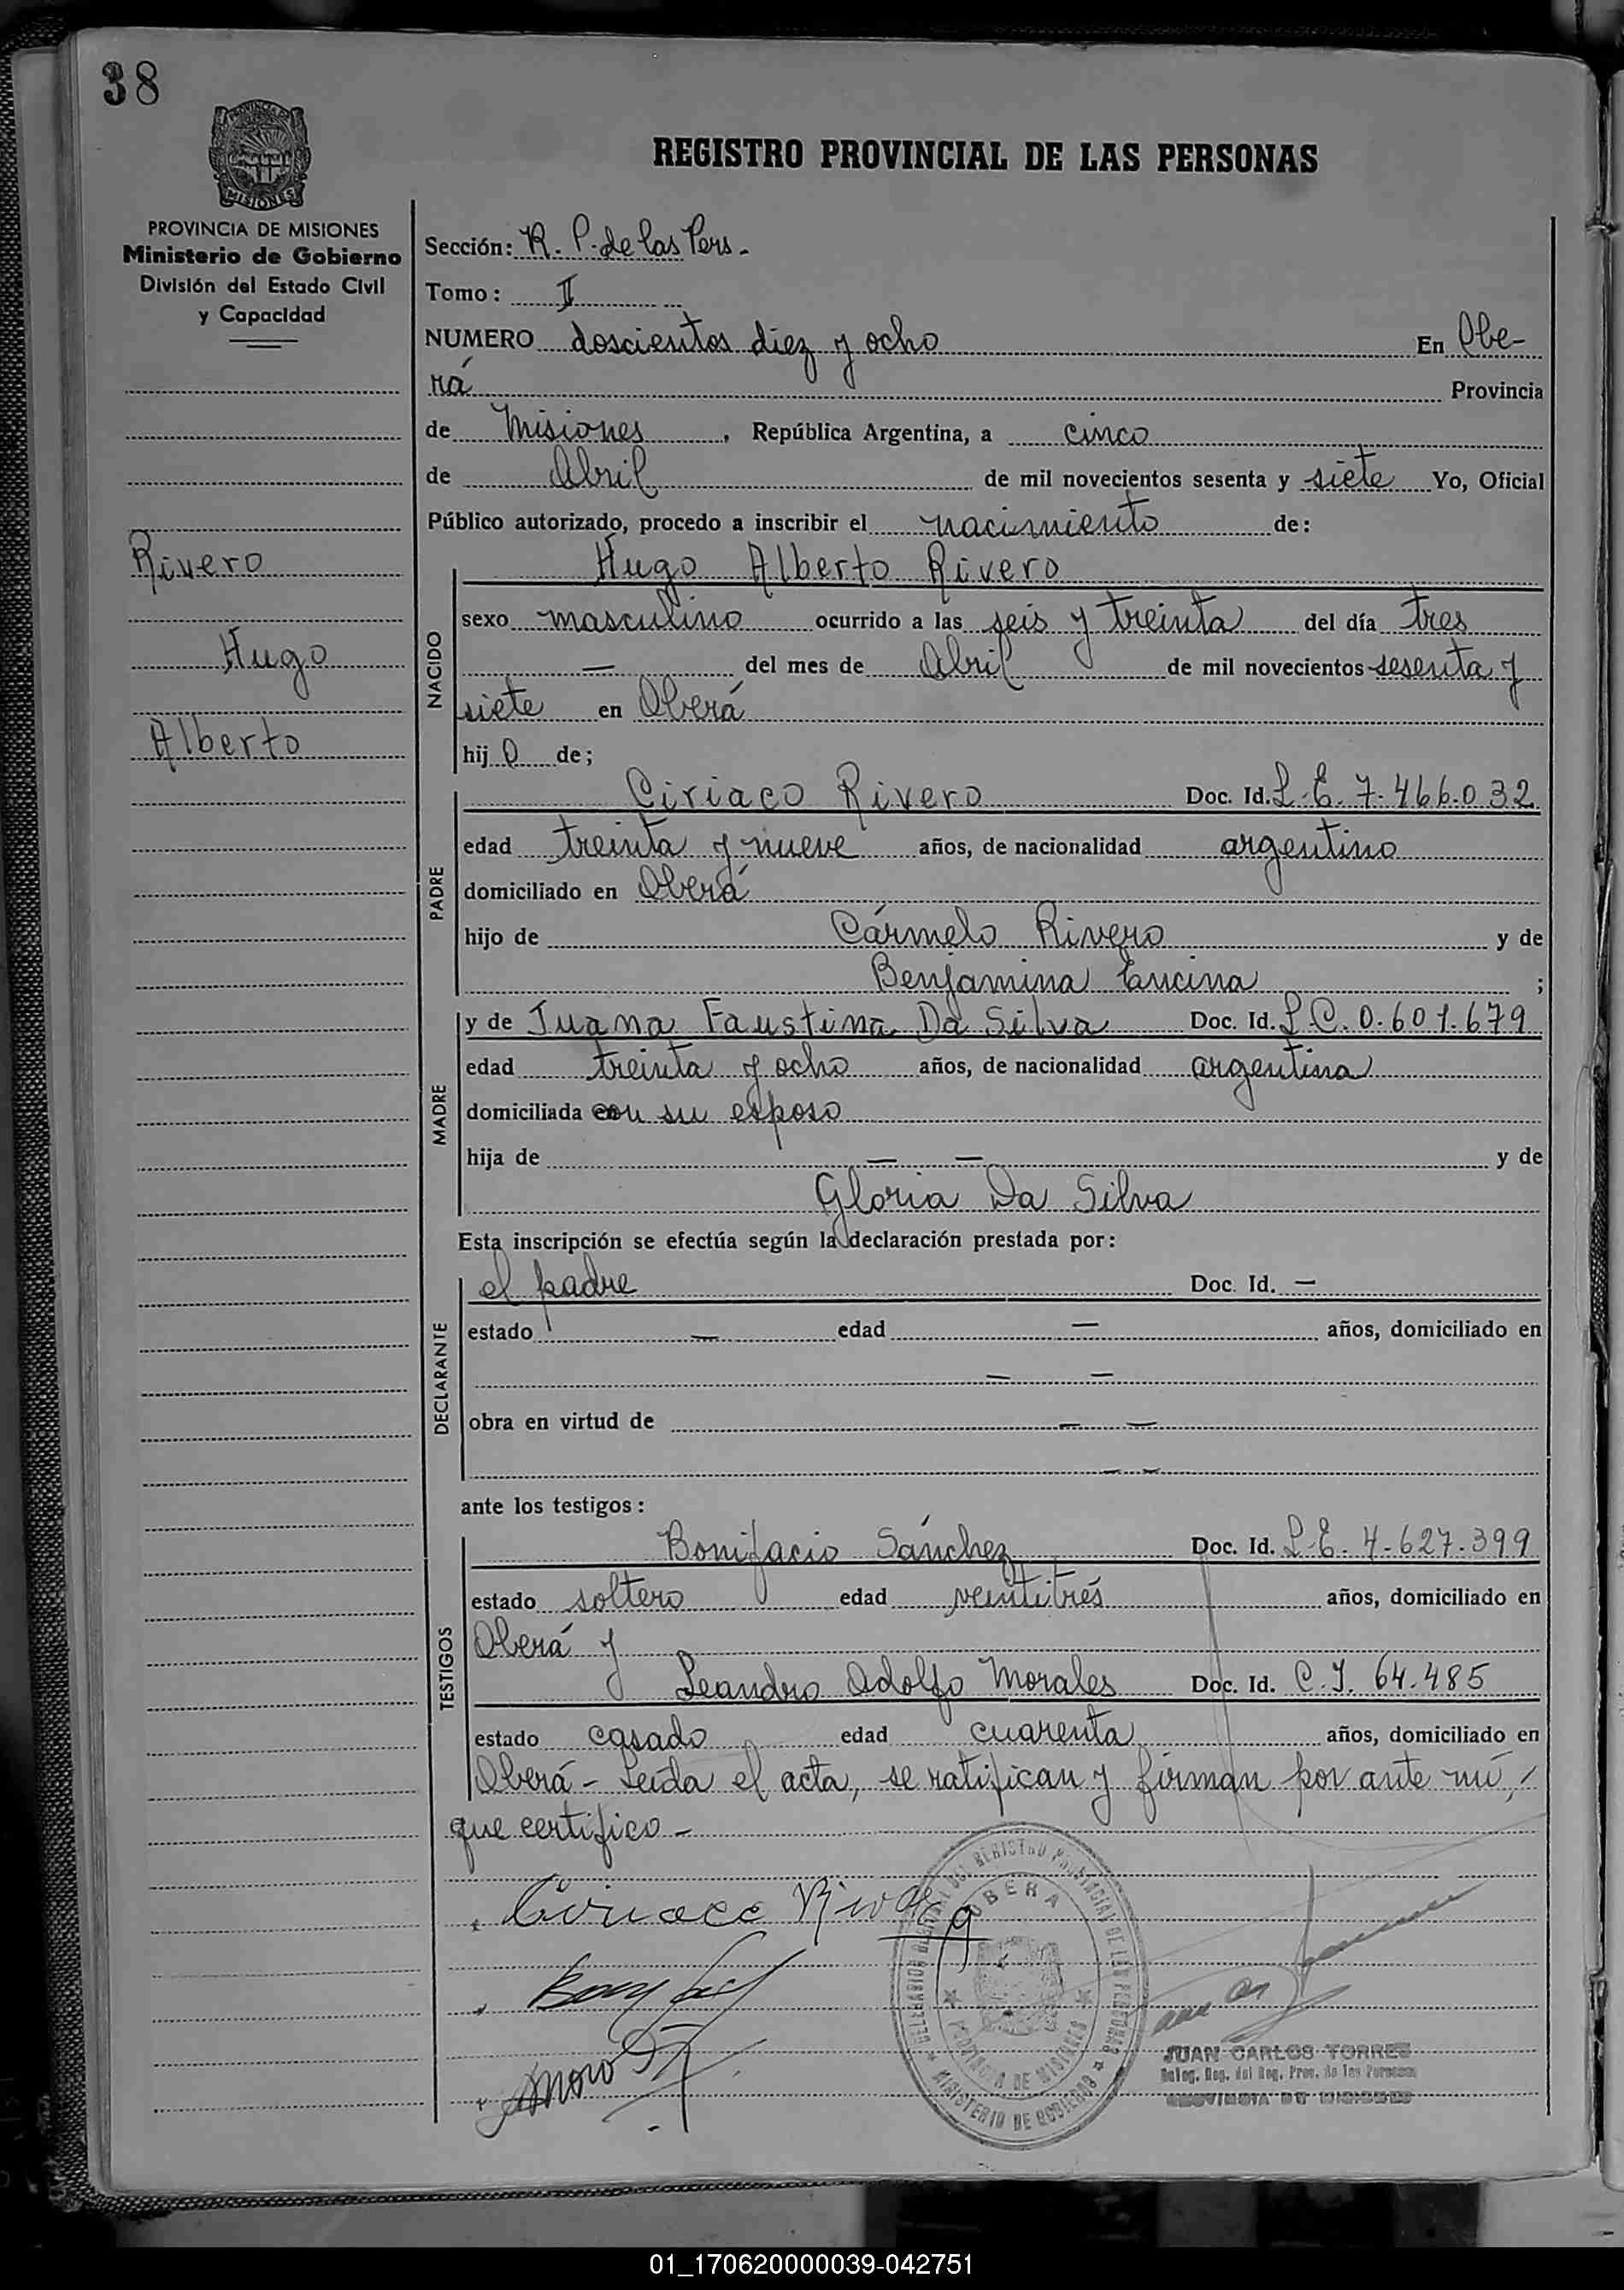 38
PROVINCIA DE MISIONES
Ministerio de Gobierno
División del Estado Civil
y Capacidad
Rivero
Hugo
Alberto
REGISTRO PROVINCIAL DE LAS PERSONAS
Sección: R. P. de las Pers.
Tomo: II
NUMERO doscientos diez y ocho En Obe-
rá Provincia
de Misiones, República Argentina, a cinco
de Abril de mil novecientos sesenta y siete Yo, Oficial
Público autorizado, procedo a inscribir el nacimiento de:
NACIDO
Hugo Alberto Rivero
sexo masculino ocurrido a las seis y treinta del día tres
— del mes de Abril de mil novecientos sesenta y
siete en Oberá
hijo de;
PADRE
Ciriaco Rivero Doc. Id. L.E. 7.466.032
edad treinta y nueve años, de nacionalidad argentino
domiciliado en Oberá
hijo de Cármelo Rivero y de
Benjamina Encina ;
MADRE
y de Juana Faustina Da Silva Doc. Id. L.C. 0.601.679
edad treinta y ocho años, de nacionalidad argentina
domiciliada con su esposo
hija de — — y de
Gloria Da Silva
Esta inscripción se efectúa según la declaración prestada por:
DECLARANTE
el padre Doc. Id. —
estado — edad — años, domiciliado en
— —
obra en virtud de — —
— —
ante los testigos:
TESTIGOS
Bonifacio Sánchez Doc. Id. L.E. 4.627.399
estado soltero edad veintitrés años, domiciliado en
Oberá y
Leandro Adolfo Morales Doc. Id. C.I. 64.485
estado casado edad cuarenta años, domiciliado en
Oberá - Leída el acta, se ratifican y firman por ante mí,
que certifico -
Ciriaco Rivero
OBERA
PROVINCIA DE MISIONES
MINISTERIO DE GOBIERNO
JUAN CARLOS TORRES
Deleg. Reg. del Reg. Prov. de las Personas
PROVINCIA DE MISIONES
01_170620000039-042751